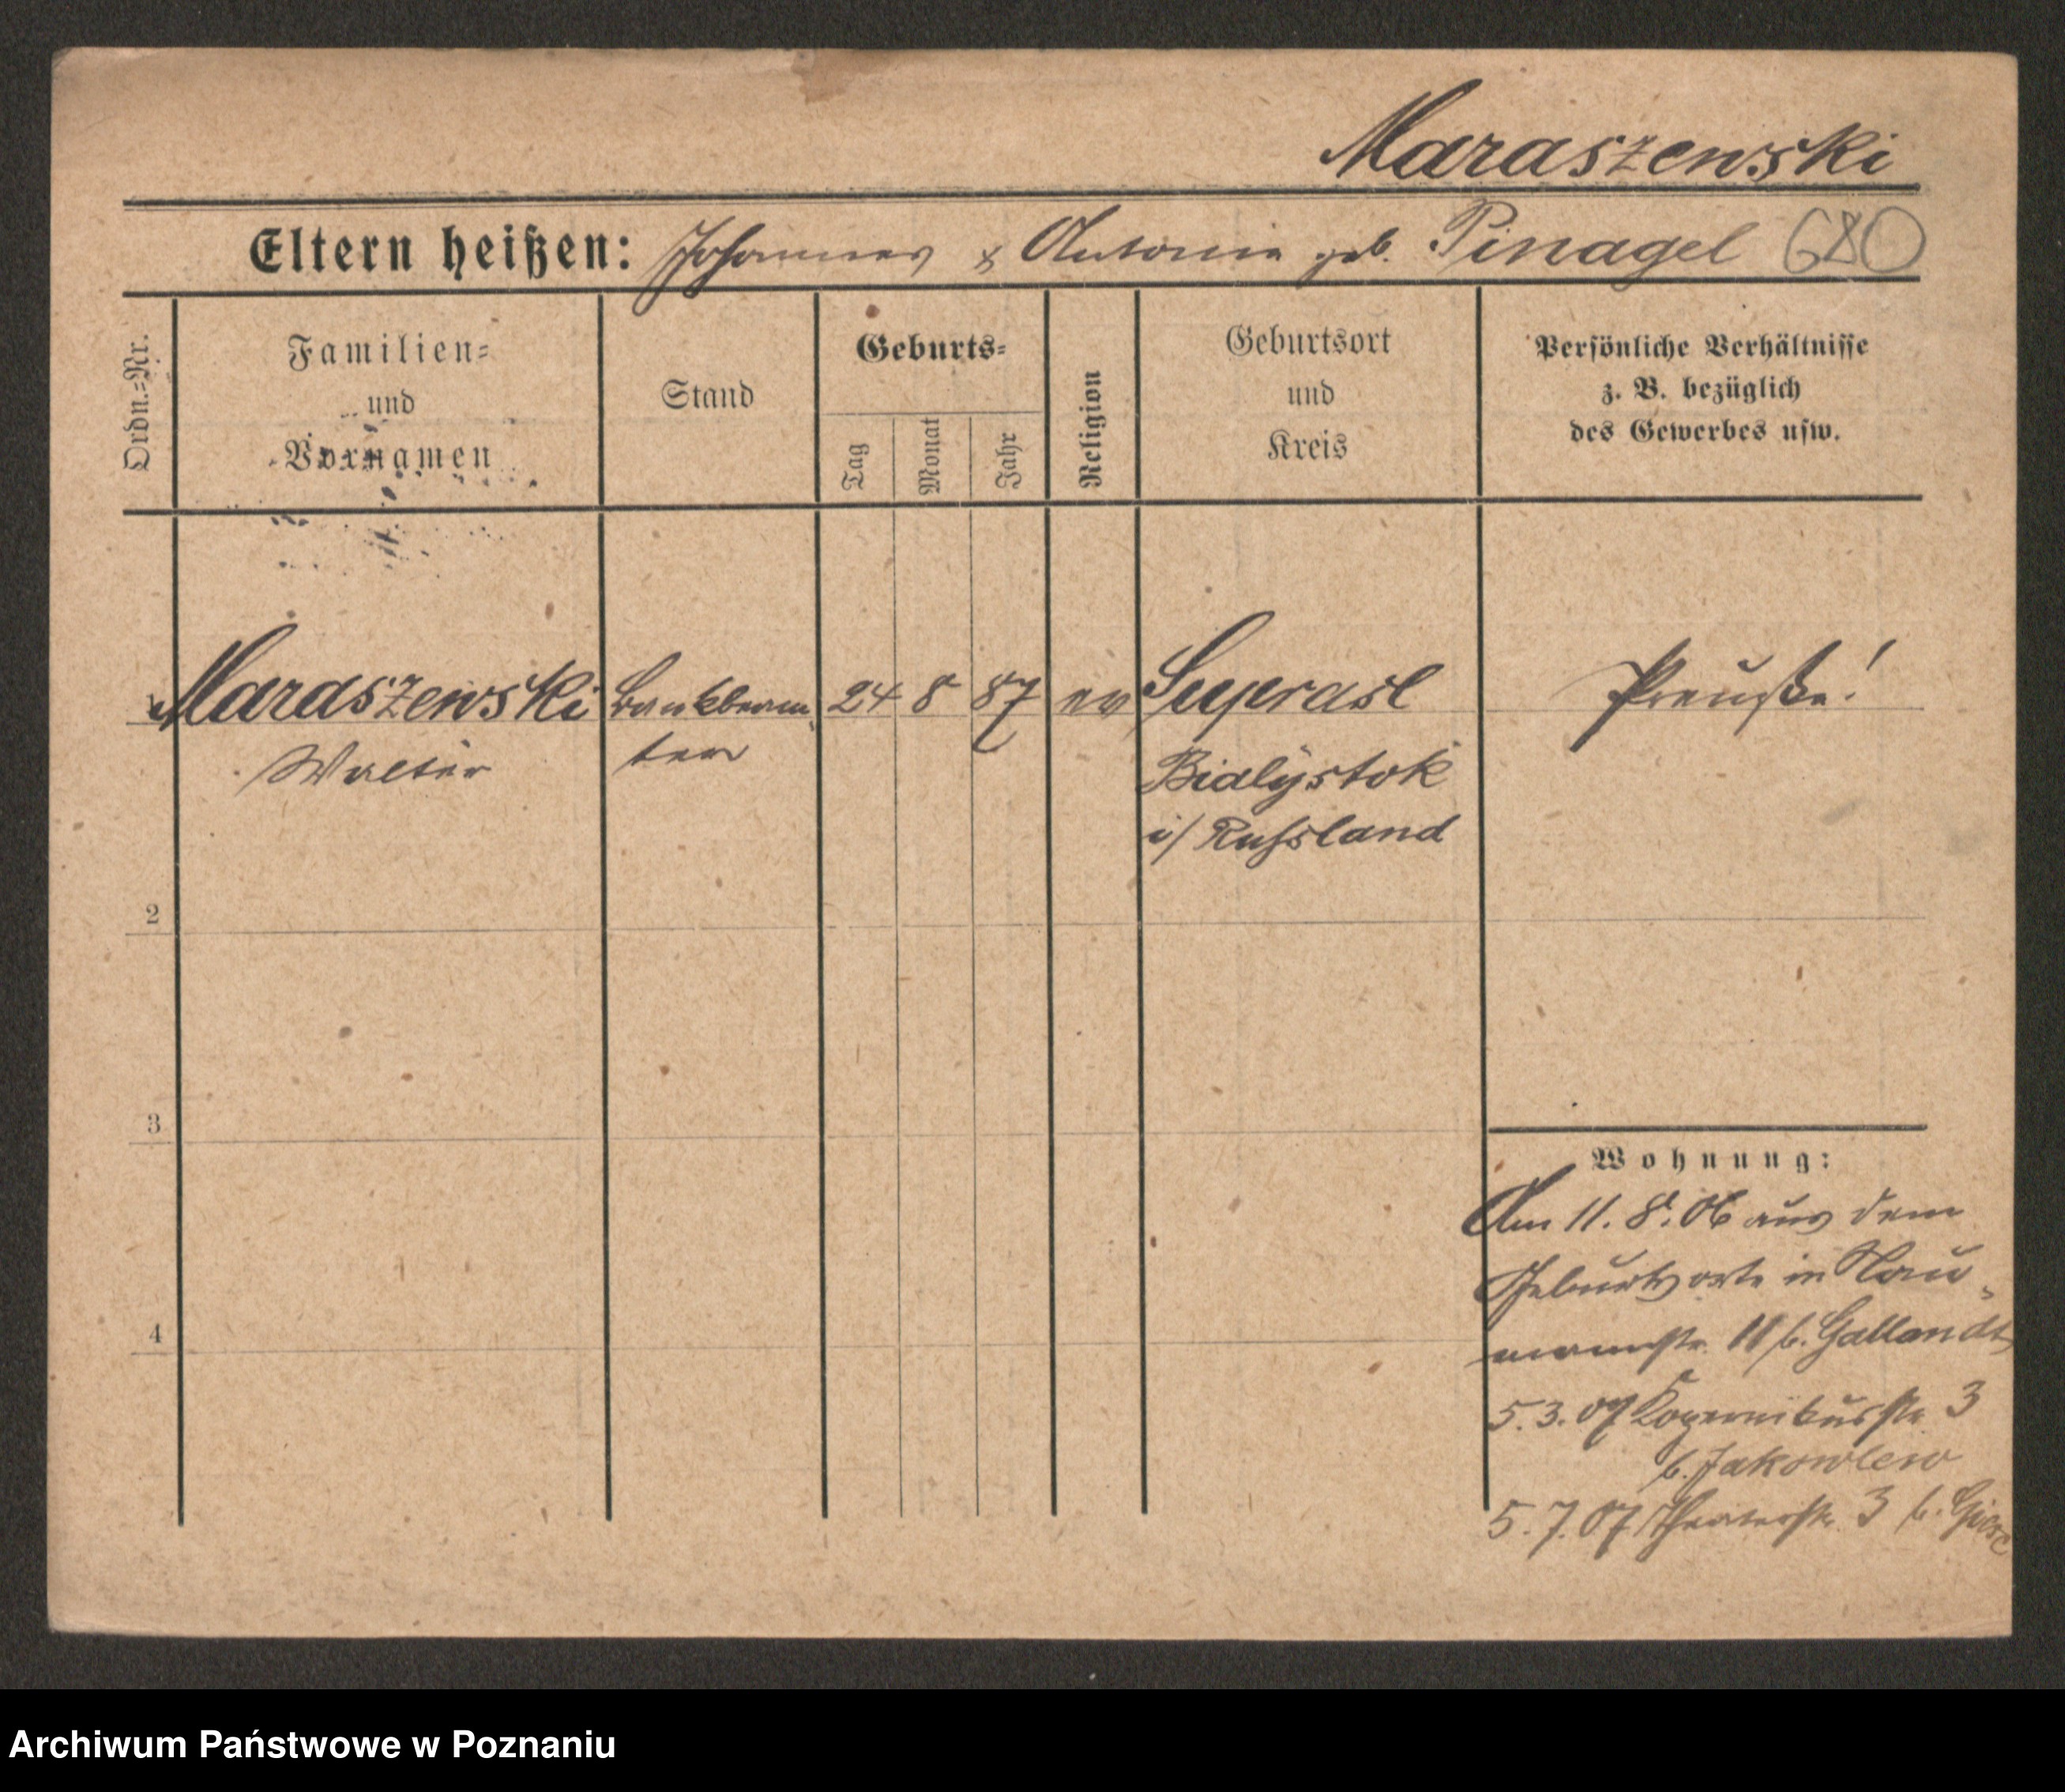 Maraszewski
Eltern heißen: Johannes & Antonie geb. Pinagel 680
Ordn.=Nr.
Familien=
und
Vornamen
Stand
Geburts=
Tag
Monat
Jahr
Religion
Geburtsort
und
Kreis
Persönliche Verhältnisse
z. B. bezüglich
des Gewerbes usw.
Maraszewski Bankbeam- 24 8 87 ev Suprasl Preuße!
Walter ter Bialystok
i/ Russland
2
3
4
Wohnung:
Am 11. 8. 06 aus dem
Geburtsorte in Nau-
mannstr. 11 b. Gallandt
5. 3. 07 Kopernikusstr 3
b. Jakowlew
5. 7. 07 Theaterstr. 3 b. Giese
Archiwum Państwowe w Poznaniu